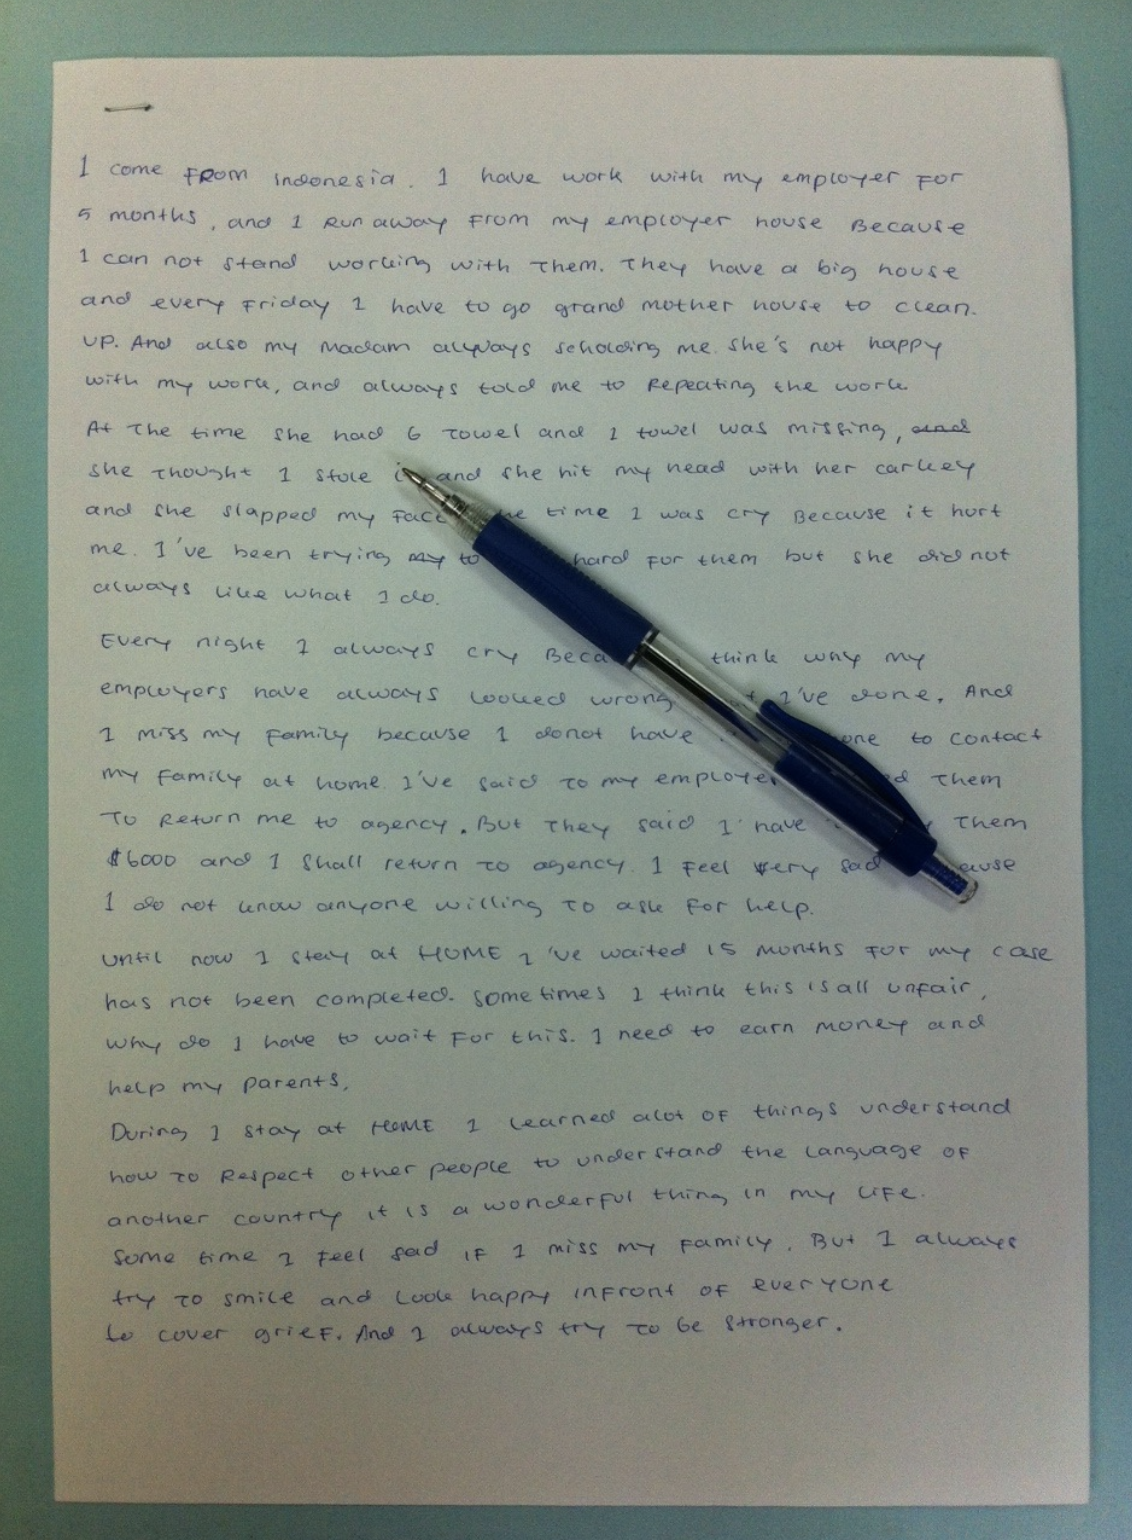 I come from Indonesia. I have work with my employer for
5 months, and I run away from my employer house because
I can not stand working with them. They have a big house
and every Friday I have to go grand mother house to clean.
up. And also my Madam always scholding me. She's not happy
with my work, and always told me to repeating the work.
At the time she had 6 towel and 1 towel was missing, and
she thought I stole and she hit my head with her carkey
and she slapped my time I was cry because it hurt
me. I've been trying my to hard for them but she did not
always like what I do.
Every night I always cry think why my
employers have always looked wrong I've done. And
I miss my family because I donot have to contact
my family at home. I've said to my them
To return me to agency. But they said I have them
$6000 and I shall return to agency. I feel very sad
I do not know anyone willing to ask for help.
Until now I stay at HOME I've waited 15 months for my case
has not been completed. Sometimes I think this is all unfair,
why do I have to wait for this. I need to earn money and
help my parents,
During I stay at HOME I learned alot of things understand
how to respect other people to understand the language of
another country it is a wonderful thing in my life.
Some time I feel sad if I miss my family. But I always
try to smile and look happy infront of everyone
to cover grief. And I always try to be stronger.